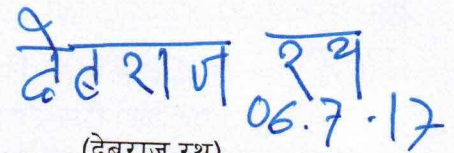 देबराज रथ
06.7.17
(देबराज रथ)